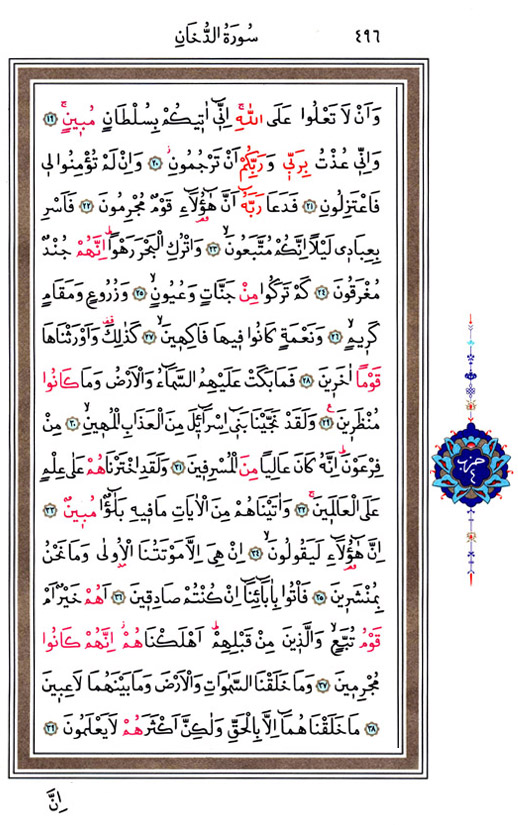 ٤٩٦ سُورَةُ الدُّخَانِ
وَاَنْ لَا تَعْلُوا عَلَى اللّٰهِۚ اِنّ۪ٓي اٰت۪يكُمْ بِسُلْطَانٍ مُب۪ينٍۚ ﴿١٩﴾
وَاِنّ۪ي عُذْتُ بِرَبّ۪ي وَرَبِّكُمْ اَنْ تَرْجُمُونِۘ ﴿٢٠﴾ وَاِنْ لَمْ تُؤْمِنُوا ل۪ي
فَاعْتَزِلُونِ ﴿٢١﴾ فَدَعَا رَبَّهُٓ اَنَّ هٰٓؤُ۬لَٓاءِ قَوْمٌ مُجْرِمُونَ ﴿٢٢﴾ فَاَسْرِ
بِعِبَاد۪ي لَيْلاً اِنَّكُمْ مُتَّبَعُونَۙ ﴿٢٣﴾ وَاتْرُكِ الْبَحْرَ رَهْواًۜ اِنَّهُمْ جُنْدٌ
مُغْرَقُونَ ﴿٢٤﴾ كَمْ تَرَكُوا مِنْ جَنَّاتٍ وَعُيُونٍۙ ﴿٢٥﴾ وَزُرُوعٍ وَمَقَامٍ
كَر۪يمٍۙ ﴿٢٦﴾ وَنَعْمَةٍ كَانُوا ف۪يهَا فَاكِه۪ينَۙ ﴿٢٧﴾ كَذٰلِكَ۠ وَاَوْرَثْنَاهَا
قَوْماً اٰخَر۪ينَ ﴿٢٨﴾ فَمَا بَكَتْ عَلَيْهِمُ السَّمَٓاءُ وَالْاَرْضُ وَمَا كَانُوا
مُنْظَر۪ينَ۟ ﴿٢٩﴾ وَلَقَدْ نَجَّيْنَا بَن۪ٓي اِسْرَٓائ۪لَ مِنَ الْعَذَابِ الْمُه۪ينِۙ ﴿٣٠﴾ مِنْ
فِرْعَوْنَۜ اِنَّهُ كَانَ عَالِياً مِنَ الْمُسْرِف۪ينَ ﴿٣١﴾ وَلَقَدِ اخْتَرْنَاهُمْ عَلٰى عِلْمٍ
عَلَى الْعَالَم۪ينَۚ ﴿٣٢﴾ وَاٰتَيْنَاهُمْ مِنَ الْاٰيَاتِ مَا ف۪يهِ بَلٰٓؤٌ۬ا مُب۪ينٌ ﴿٣٣﴾
اِنَّ هٰٓؤُ۬لَٓاءِ لَيَقُولُونَۙ ﴿٣٤﴾ اِنْ هِيَ اِلَّا مَوْتَتُنَا الْاُو۫لٰى وَمَا نَحْنُ
بِمُنْشَر۪ينَ ﴿٣٥﴾ فَأْتُوا بِاٰبَٓائِنَٓا اِنْ كُنْتُمْ صَادِق۪ينَ ﴿٣٦﴾ اَهُمْ خَيْرٌ اَمْ
قَوْمُ تُبَّعٍۙ وَالَّذ۪ينَ مِنْ قَبْلِهِمْۜ اَهْلَكْنَاهُمْۘ اِنَّهُمْ كَانُوا
مُجْرِم۪ينَ ﴿٣٧﴾ وَمَا خَلَقْنَا السَّمٰوَاتِ وَالْاَرْضَ وَمَا بَيْنَهُمَا لَاعِب۪ينَ
﴿٣٨﴾ مَا خَلَقْنَاهُمَٓا اِلَّا بِالْحَقِّ وَلٰكِنَّ اَكْثَرَهُمْ لَا يَعْلَمُونَ ﴿٣٩﴾
اِنَّ
حزب
٤